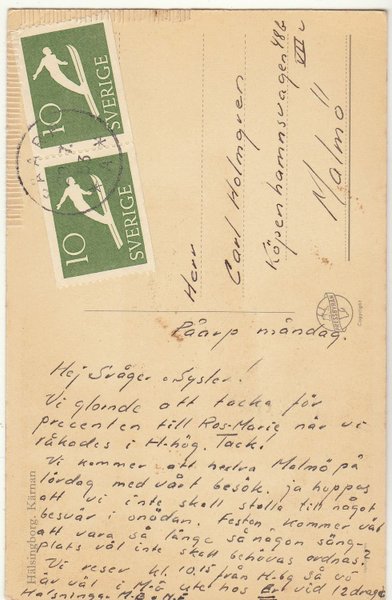 10
SVERIGE
10
SVERIGE
Herr
Carl Holmqven
Köpenhamnsvägen 48b
VII v
Malmö
PRESSBYRÅN
Copyright
Hälsingborg. Kärnan
Påarp måndag.
Hej Svåger o Syster!
Vi glömde att tacka för
precenten till Ros-Marie när vi
råkades i H-hög. Tack!
Vi kommer att hedra Malmö på
lördag med vårt besök. ja hoppas
att vi inte skall ställa till något
besvär i onödan. Festen kommer väl
att vara så länge så någon säng-
plats väl inte skall behövas ordnas?
Vi reser kl. 10.15 från H-bg så vi
är väl i M-ö ute hos Er vid 12 draget
Hälsningar M-B o